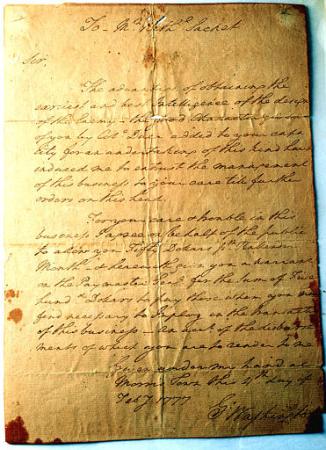 To Mr. Nathl. Sacket
Sir,
The advantage of obtaining the
earliest and best Intelligence of the designs
of the Enemy – the good character given
of you by Colo. Duer added to your capa
bility for an undertaking of this kind have
induced me to entrust the management
of this business to your care till further
orders on this head.
For your care & trouble in this
business I agree on behalf of the public
to allow you Fifty Dollars pr. Kalender
Month – & herewith give you a warrant
on the Paymaster Genl. for the sum of Five
hundd. Dollars to pay those whom you may
find necessary to Imploy in the transaction
of this business – an acct. of the disburse
ments of which you are to render to me
Given under my hand at
Morris Town this 4th. day of
Feby. 1777
Go: Washington